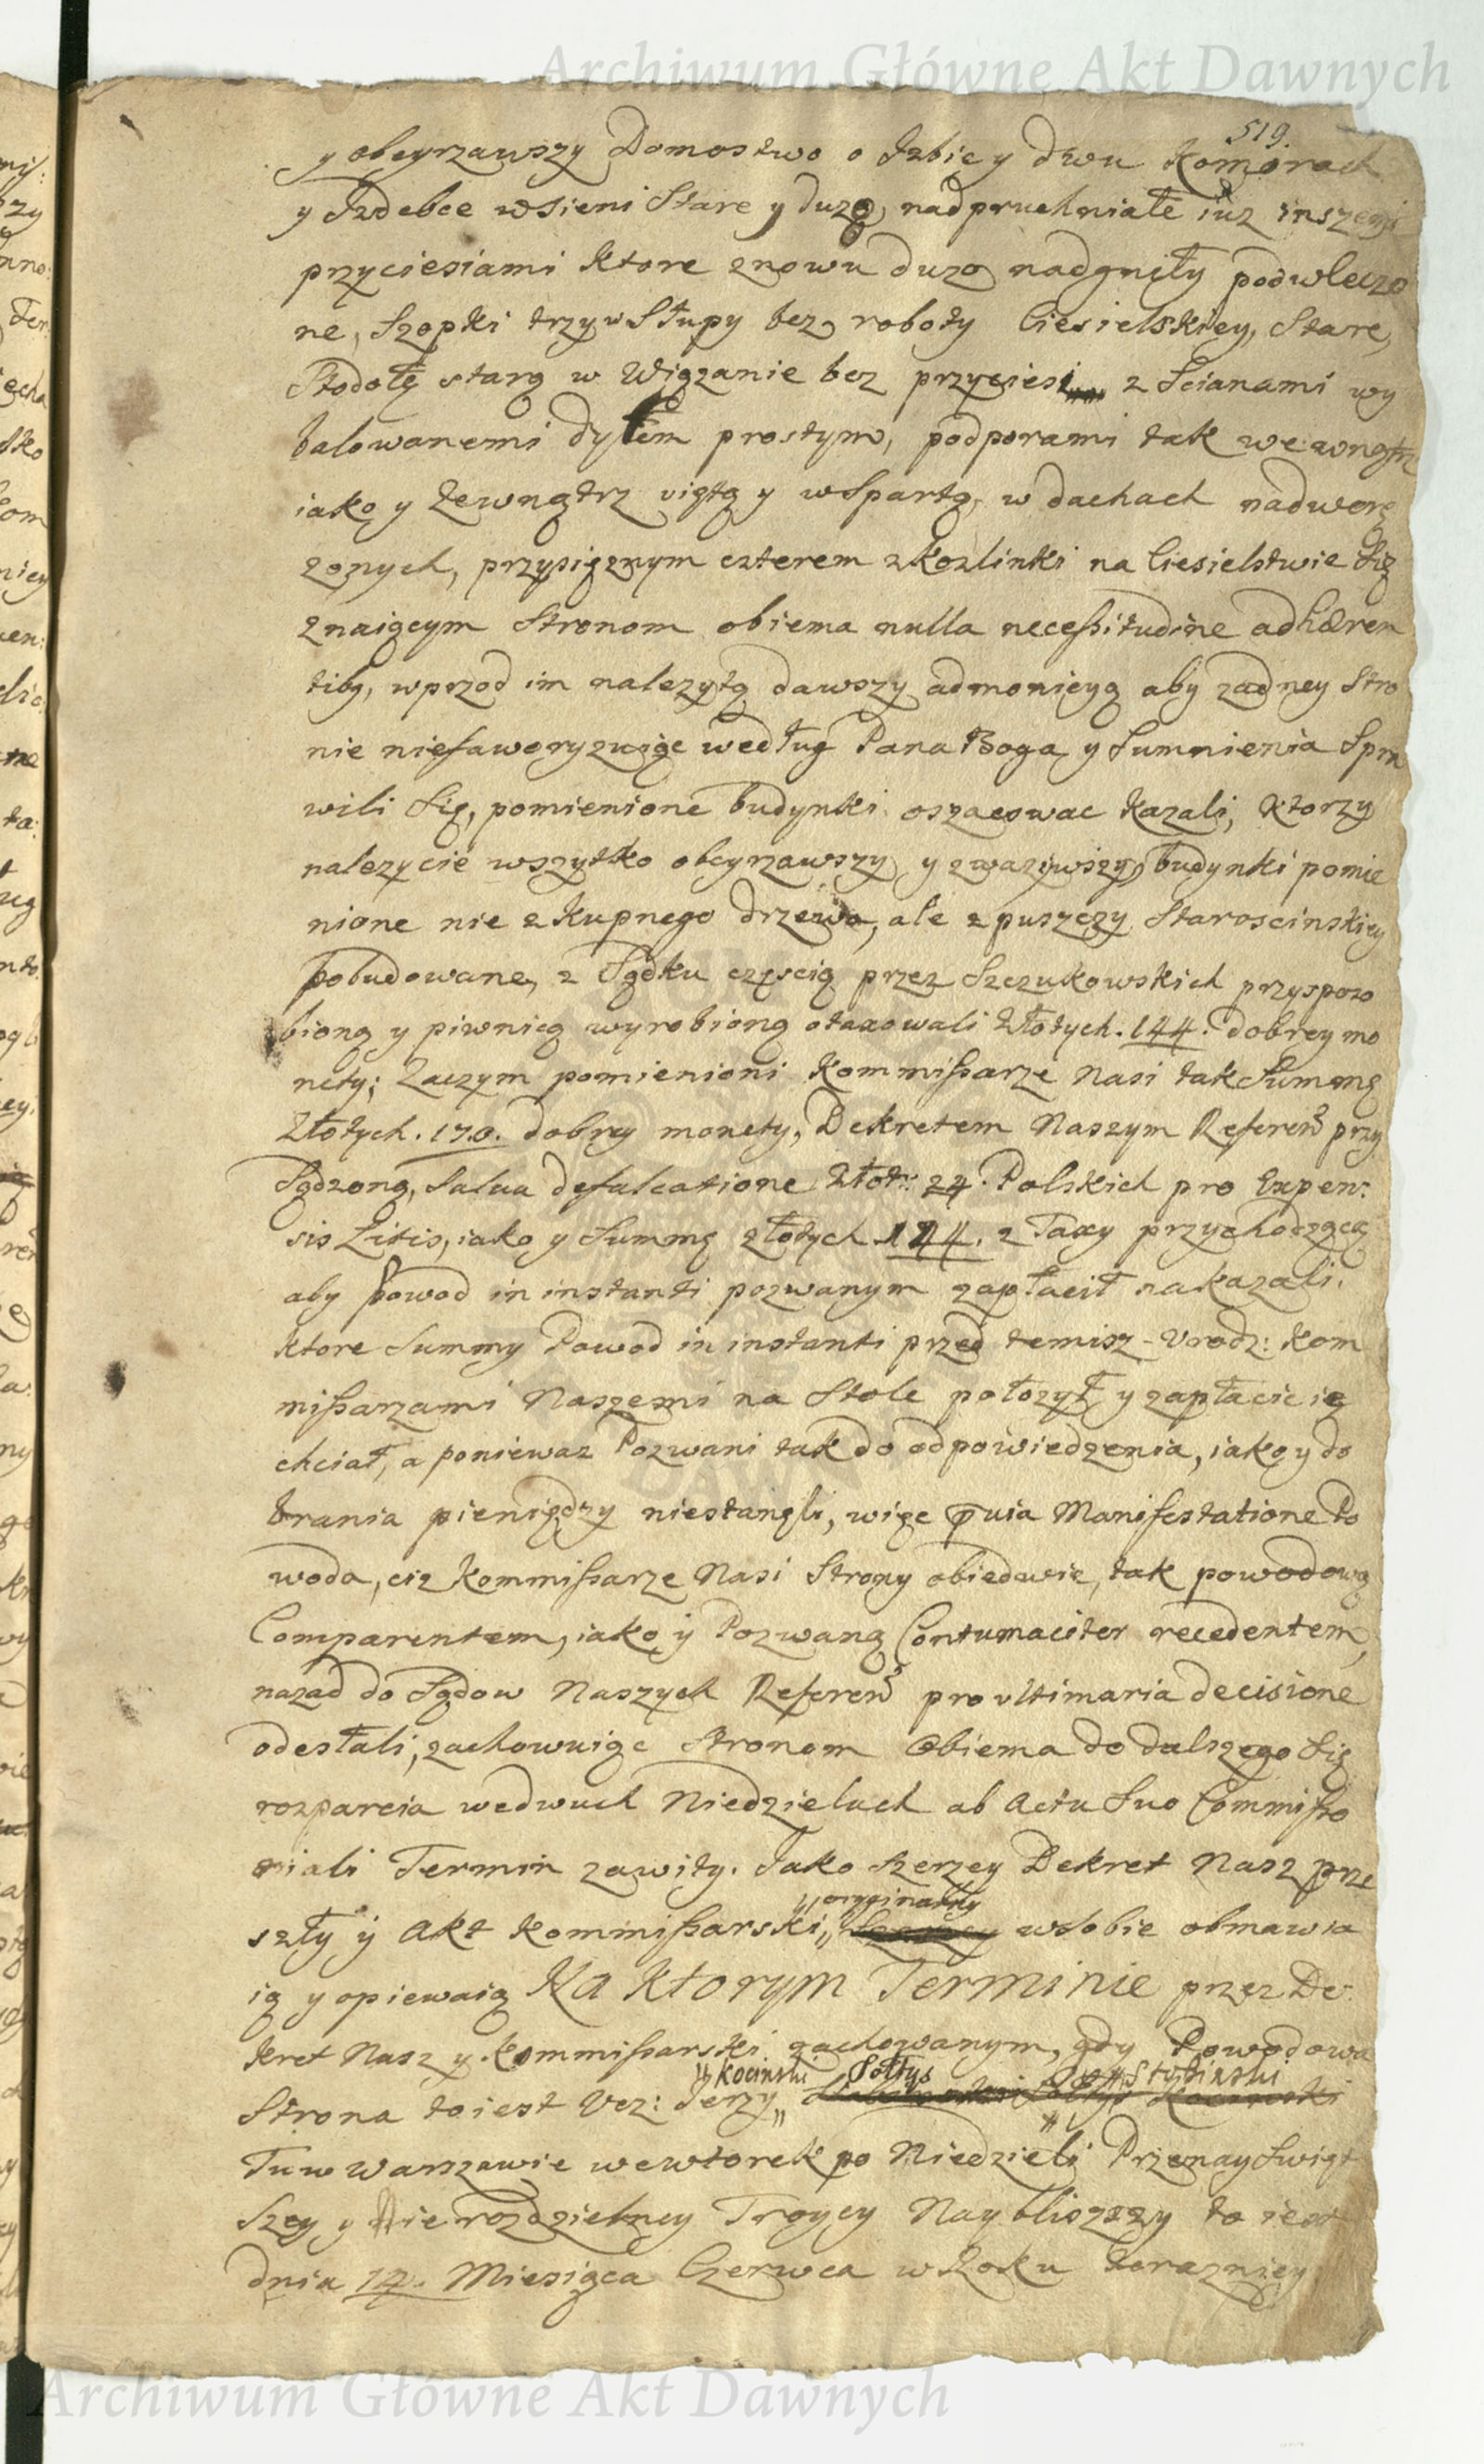 Archiwum Główne Akt Dawnych
519.
y obeyrzawszy Domostwo o Izbie y dwu Komorach
y Izdebce w Sieni Stare y duzo nadpruchniałe iuz inszemi
przyciesiami ktore znowu duzo nadgniły podwleczo
ne, Szopki trzy w Słupy bez roboty Ciesielskiey, Stare,
Stodołę starą w Wiązanie bez przyciesi z Scianami wy
balowanemi dylem prostym, podporami tak wewnątrz
iako y zewnątrz uiętą y wspartą, w dachach nadwerę
zonych, przysięznym czterem z Kozlinki na Ciesielstwie się
znaiącym Stronom obiema nulla necessitudine adhæren
tibg, wprzod im nalezytą dawszy admonicyą aby zadney Stro
nie niefaworyzuiąc według Pana Boga y Sumnienia Spra
wili się, pomienione budynki oszacowac kazali, Ktorzy
nalezycie wszytko obeyrzawszy y zwazywszy, budynki pomie
nione nie z kupnego drzewa, ale z puszczy Staroscinskiey
pobudowane, z Sądku częscią przez Szczukowskich przysposo
bioną y piwnicą wyrobioną otaxowali Złotych. 144. dobrey mo
nety; Zaczym pomienioni Kommissarze Nasi tak Summę
Złotych. 170. dobrey monety, Dekretem Naszym Referen̄ przy
sądzoną, Salva defalcatione Złot: 24. Polskich pro Expen:
sis Litis, iako y Summę złotych 144. z Taxy przychodzącą
aby powod in instanti pozwanym zapłacił nakazali.
ktore Summy Powod in instanti przed temisz Urodz: Kom
missarzami Naszemi na Stole połozył y zapłacic ie
chciał, a poniewaz Pozwani tak do odpowiedzenia, iako y do
brania pieniędzy niestanęli, więc prȩuia Manifestatione Po
woda, ciz Kommissarze Nasi Strony obiedwie, tak powodową
Comparentem, iako y Pozwaną Contumaciter recedentem,
nazad do Sądow Naszych Referen̄ pro ultimaria decisione
odesłali, zachowuiąc Stronom obiema do dalszego się
rozparcia wedwuch Niedzielach ab Actu Suo Commisso
riali Termin zawity. Jako szerzey Dekret Nasz prze
szły y Akt Kommissarski, oryginalny w sobie obmawia
ią y opiewaią Na Ktorym Terminie przez De:
kret Nasz y Kommissarski zachowanym, gdy Powodowa
Kocinski Sołtys Stybinski
Strona to iest Ucz: Jerzy Sołtys Kocinski
Tu w Warszawie we wtorek po Niedzieli Przenayświęt
szey y Nierozdzielney Troycy Naybliszszy to iest
dnia 12. Miesiąca Czerwca w Roku terazniey
Archiwum Główne Akt Dawnych